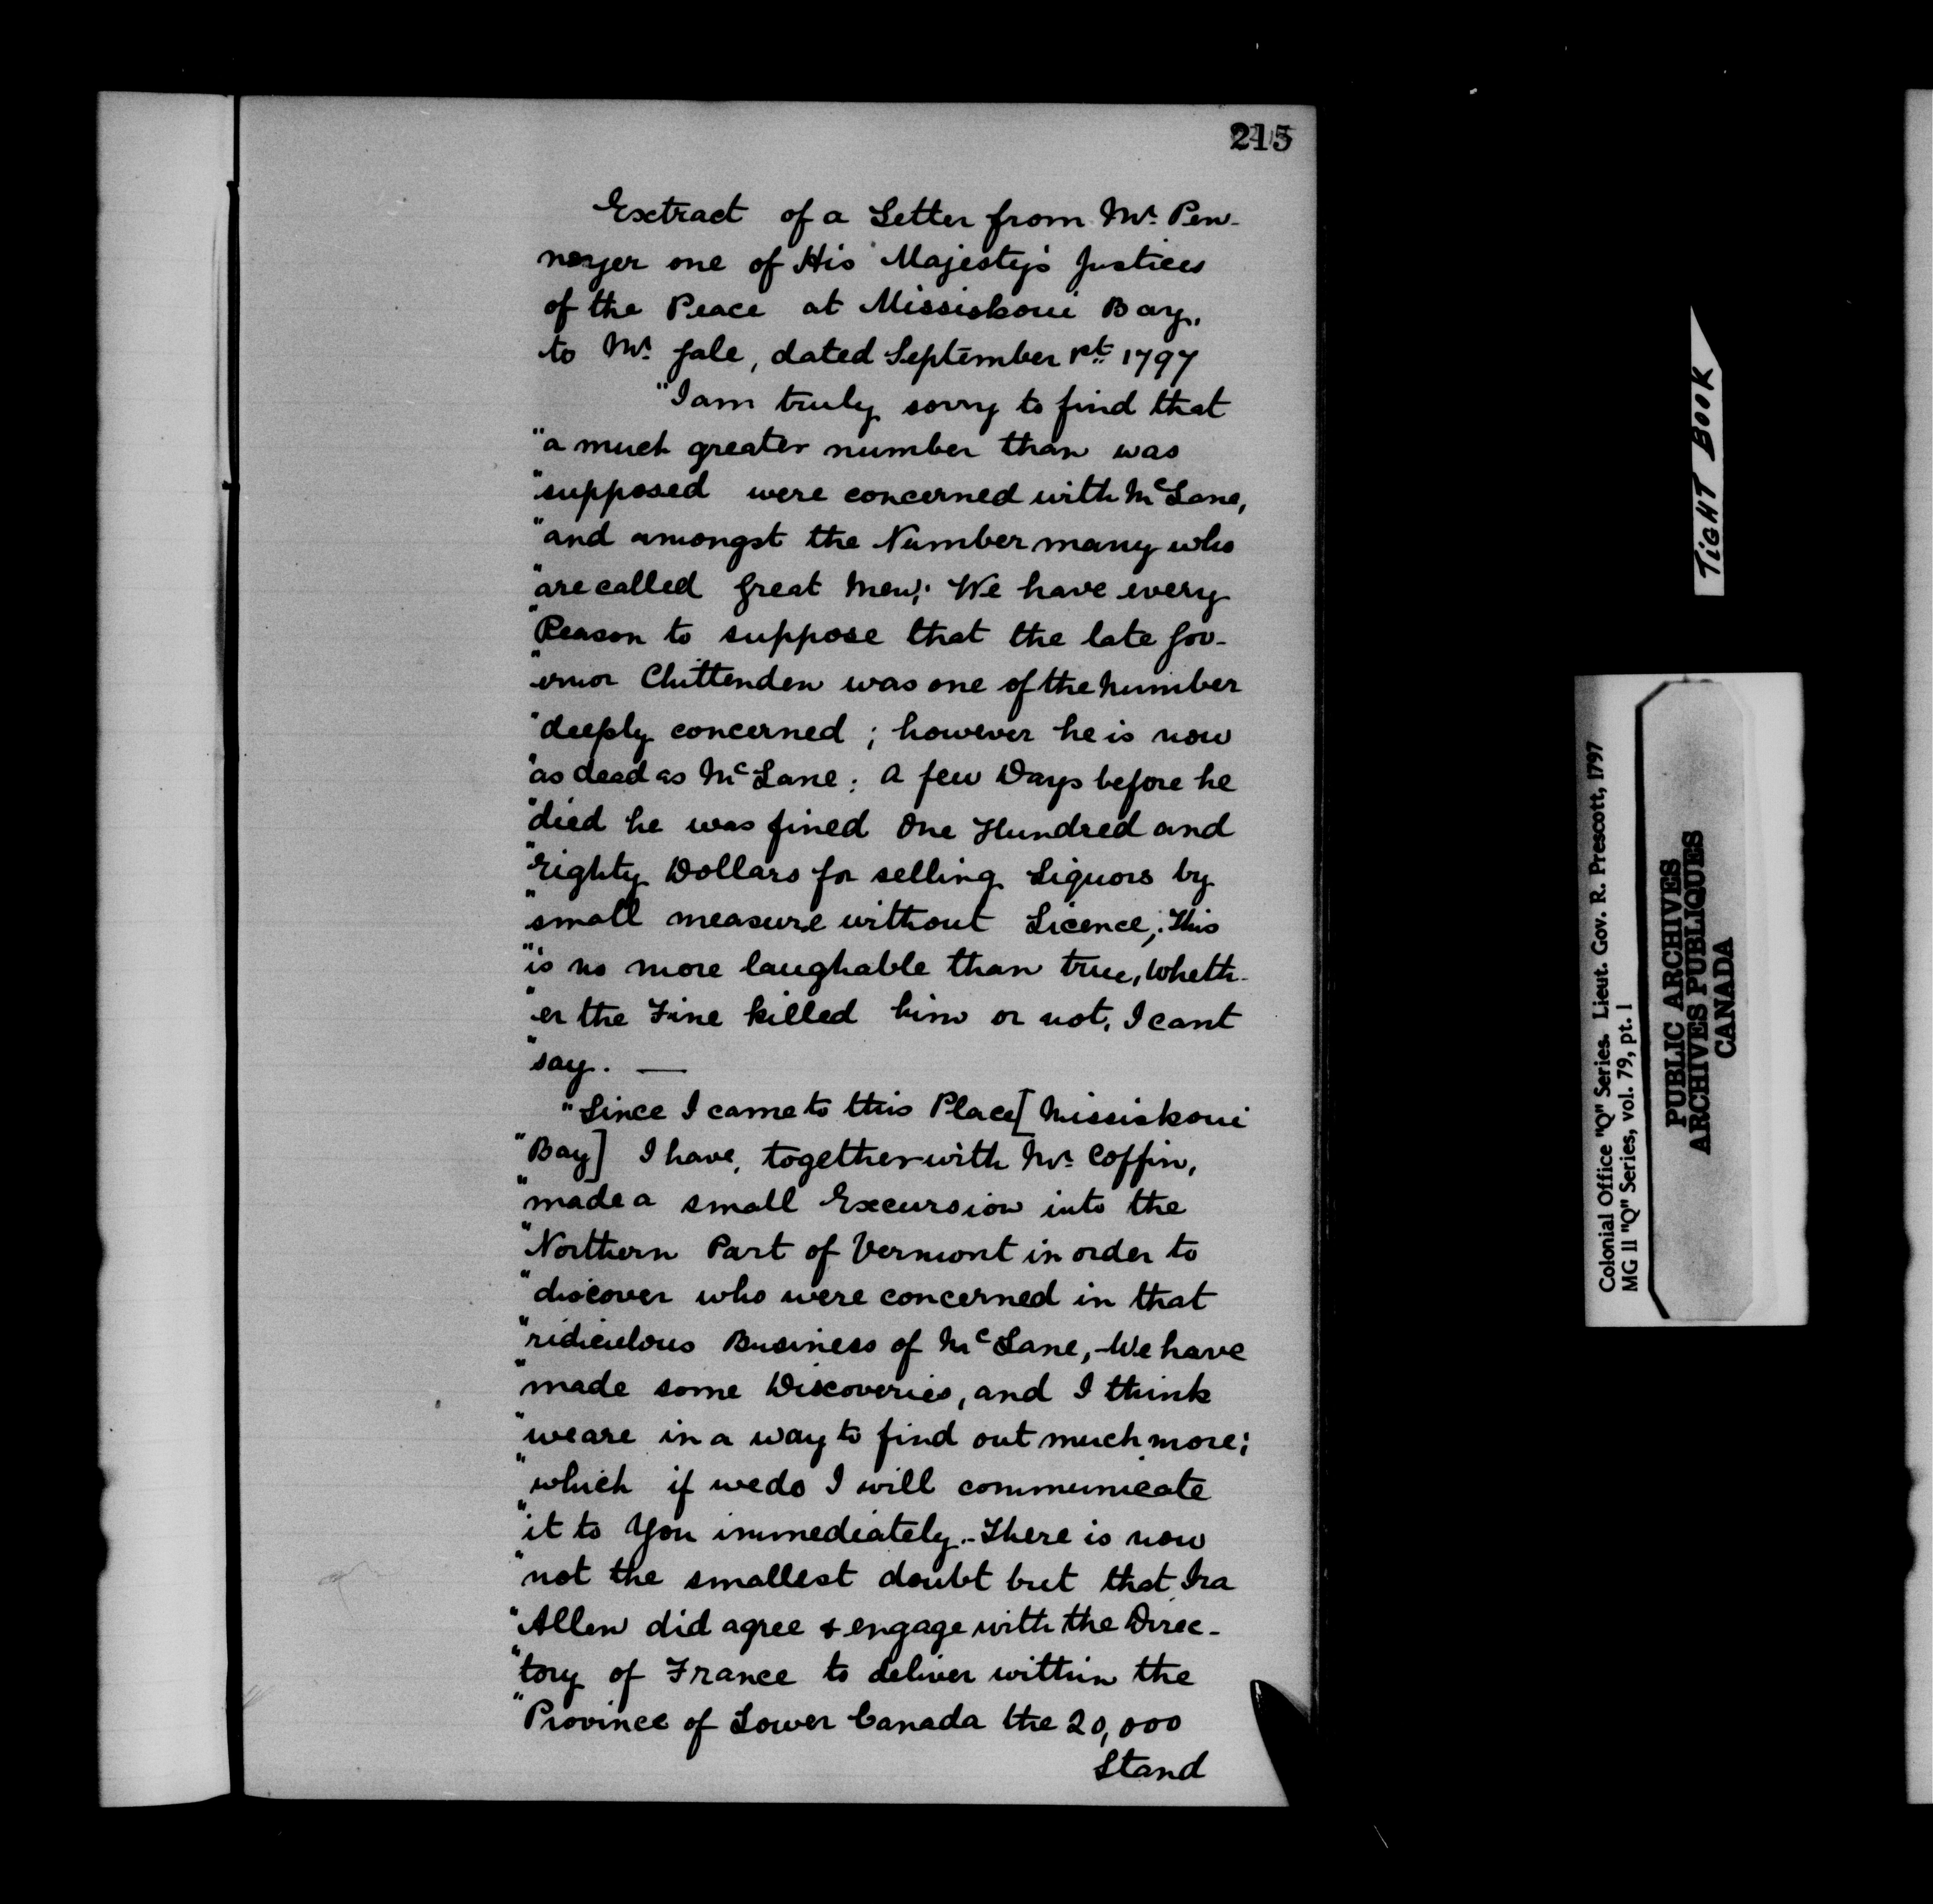 215
Extract of a Letter from Mr. Pen-
noyer one of His Majesty's Justices
of the Peace at Missiskoui Bay,
to Mr. Gale, dated September 1st. 1797
"I am truly sorry to find that
"a much greater number than was
"supposed were concerned with McLane,
"and amongst the Number many who
"are called Great Men; We have every
"Reason to suppose that the late Gov-
"ernor Chittenden was one of the Number
"deeply concerned; however he is now
"as dead as McLane: A few Days before he
"died he was fined One Hundred and
"Eighty Dollars for selling Liquors by
"small measure without Licence; This
"is no more laughable than true, Wheth-
"er the Fine killed him or not, I cant
"say. —
"Since I came to this Place [Missiskoui
"Bay] I have, together with Mr. Coffin,
"made a small Excursion into the
"Northern Part of Vermont in order to
"discover who were concerned in that
"ridiculous Business of McLane, - We have
"made some Discoveries, and I think
"we are in a way to find out much more;
"which if we do I will communicate
"it to You immediately. - There is now
"not the smallest doubt but that Ira
"Allen did agree & engage with the Direc-
"tory of France to deliver within the
"Province of Lower Canada the 20,000
Stand
TIGHT BOOK
Colonial Office "Q" Series. Lieut. Gov. R. Prescott, 1797
MG 11 "Q" Series, vol. 79, pt. 1
PUBLIC ARCHIVES
ARCHIVES PUBLIQUES
CANADA